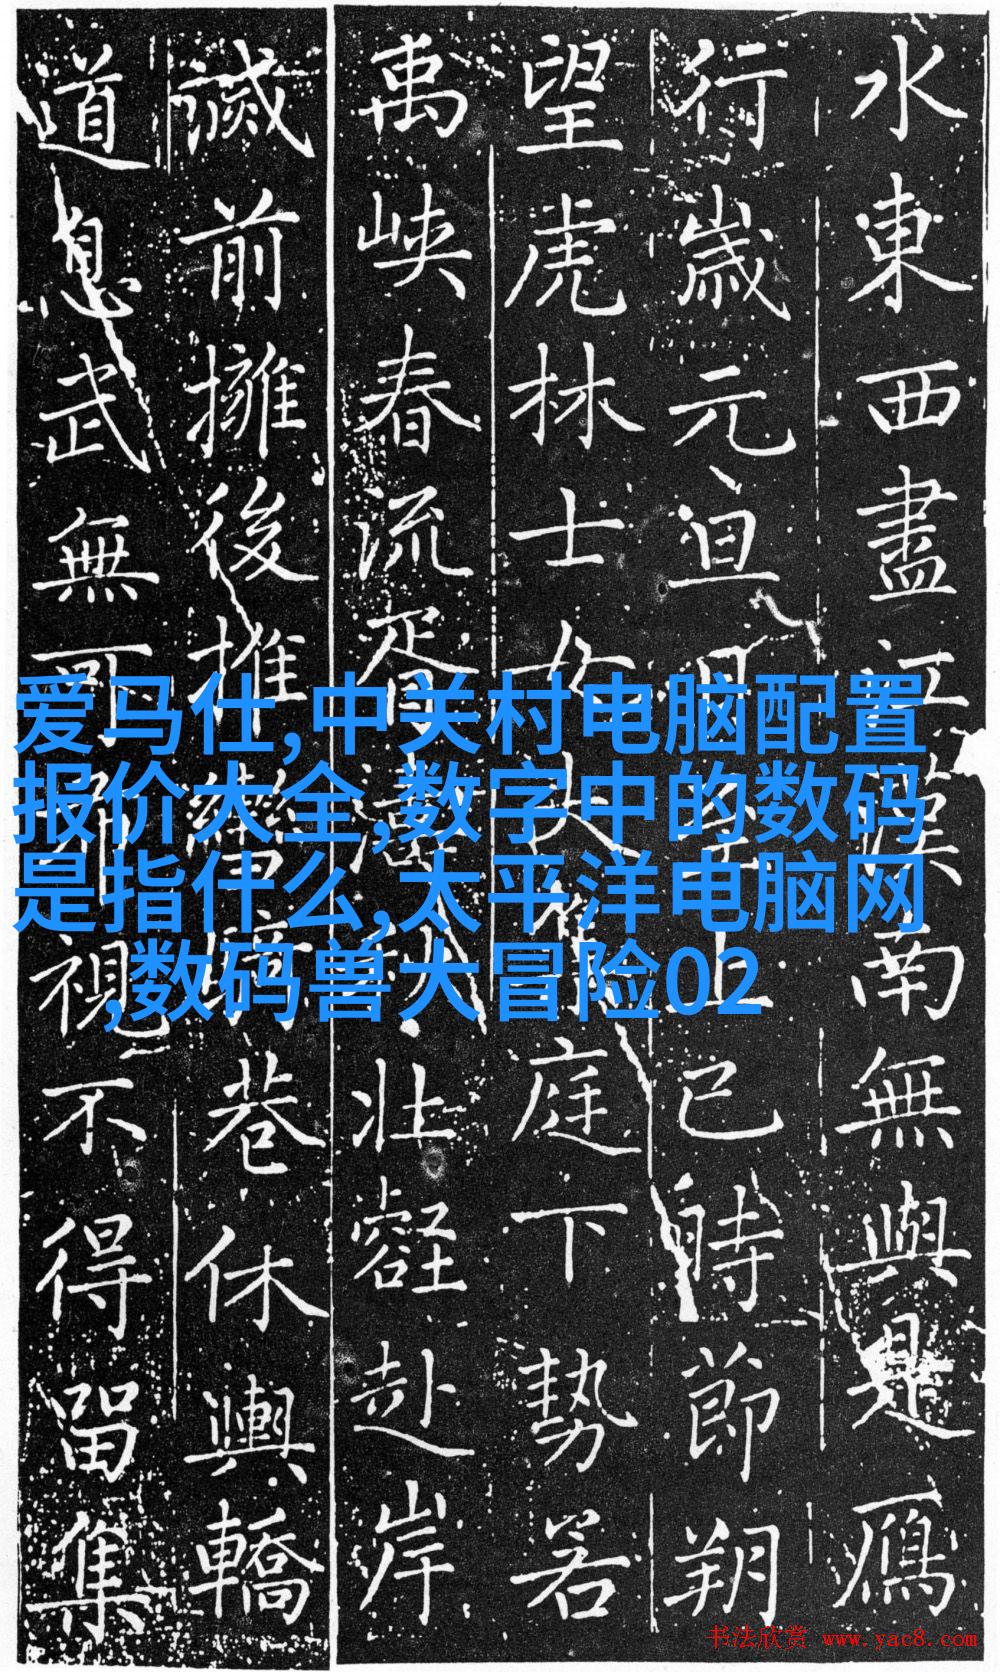 水東西盡江漢南無與是鴈
行歲元旦上已時節朔
望虎林士女庭下勢若
禹峽春流胥壯壑赴岸
前擁後推巷休輿轎
道息武無可視不得留集
爱马仕,中关村电脑配置
报价大全,数字中的数码
是指什么,太平洋电脑网
,数码兽大冒险02
书法欣赏 www.yac8.com